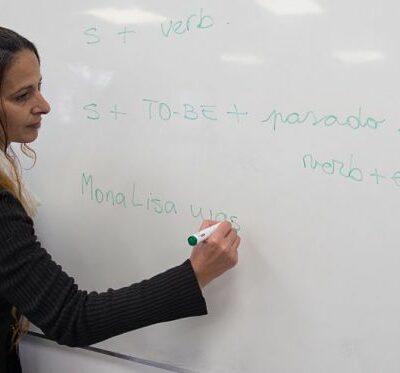 s + verb.
s + TO-BE + pasado
verb + e
MonaLisa was